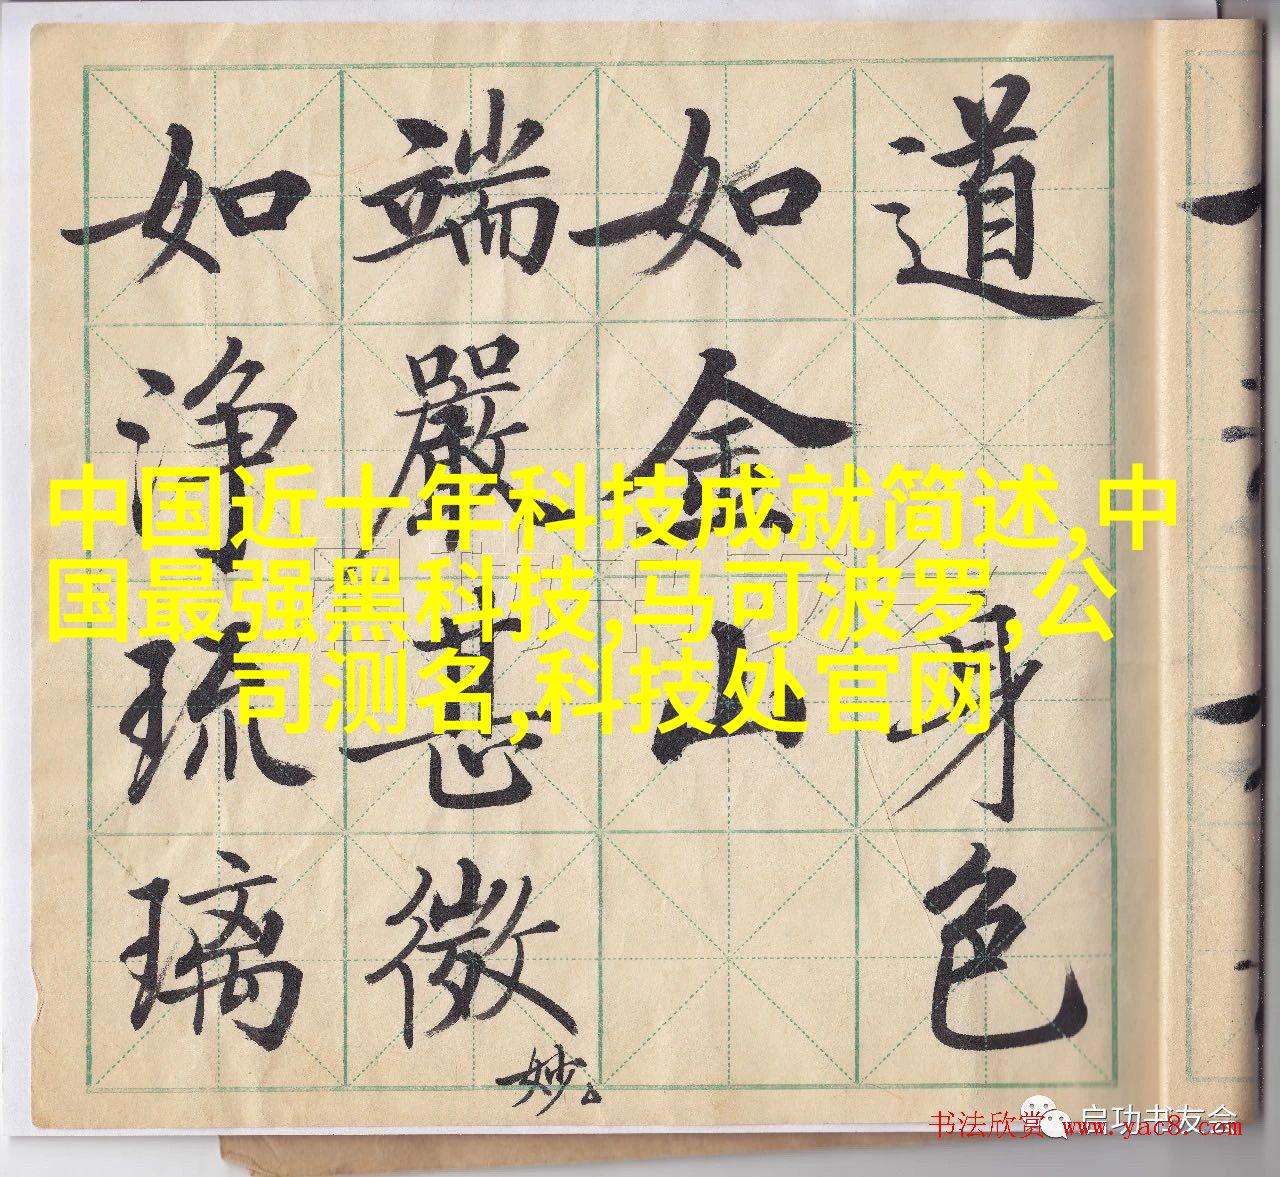 道 身色
如金山
端嚴甚微妙
如淨琉璃
中国近十年科技成就简述,中
国最强黑科技,马可波罗,公
司测名,科技处官网
启功书友会
书法欣赏 www.yac8.com